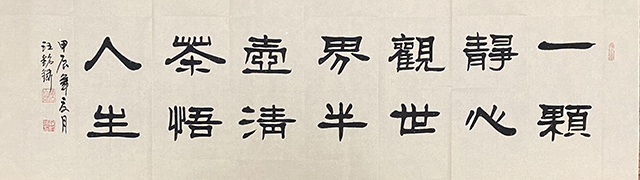 一顆
靜心
觀世
界半
壺清
茶悟
人生
甲辰年夏月